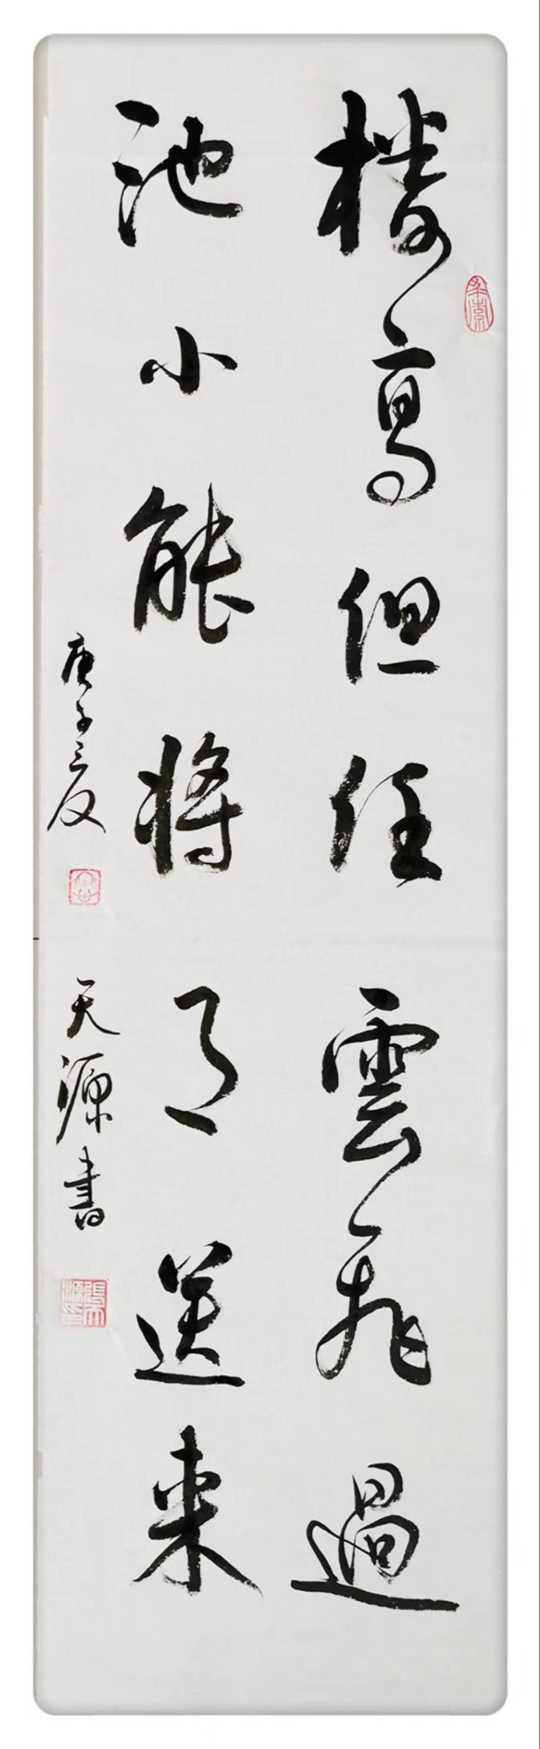 楼高但任雲飛過
池小能将月送来
庚子之夏
天源書